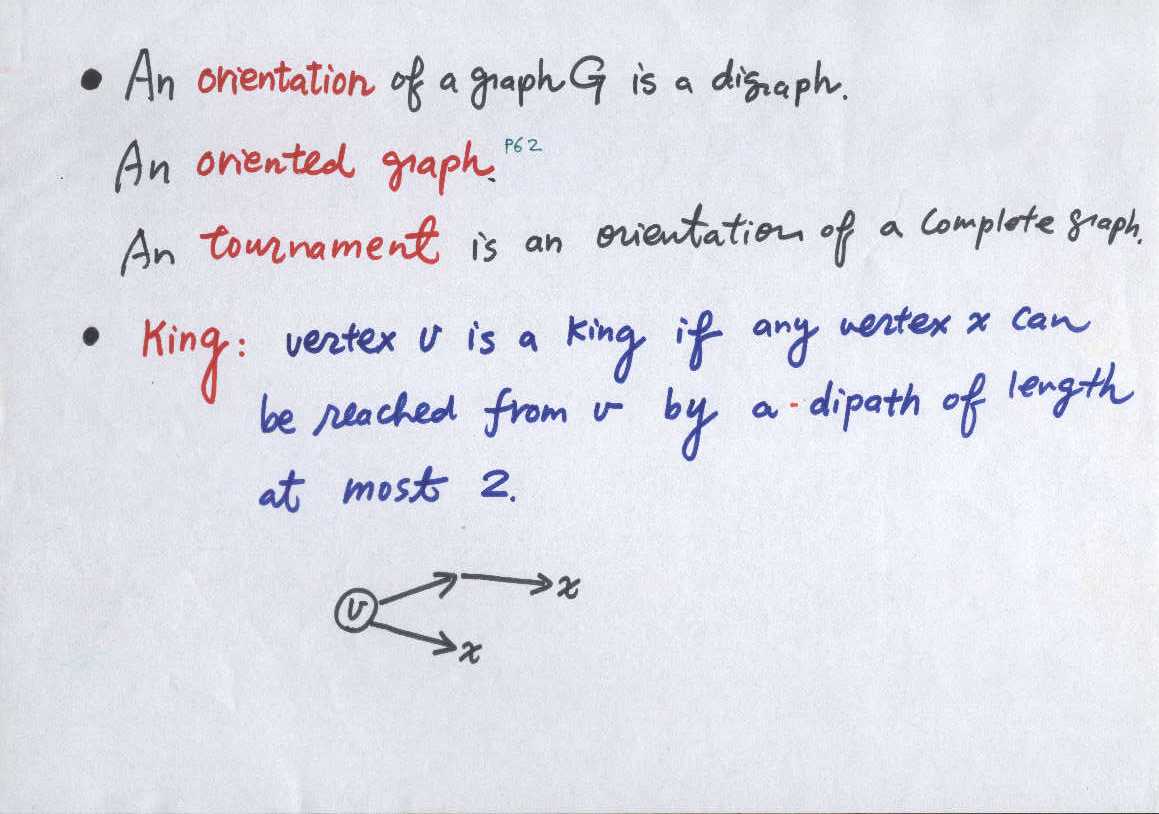 • An orientation of a graph G is a digraph.
An oriented graph. P62
An tournament is an orientation of a complete graph.
• King: vertex v is a king if any vertex x can
be reached from v by a dipath of length
at most 2.
v x
x